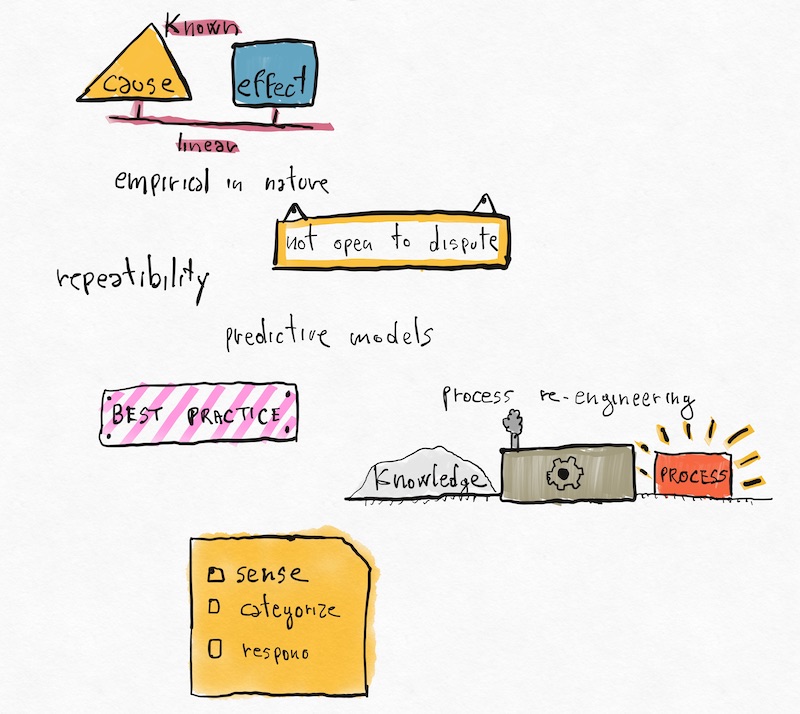 Known
cause effect
linear
empirical in nature
not open to dispute
repeatibility
predictive models
BEST PRACTICE
process re-engineering
Knowledge
PROCESS
sense
categorize
respond